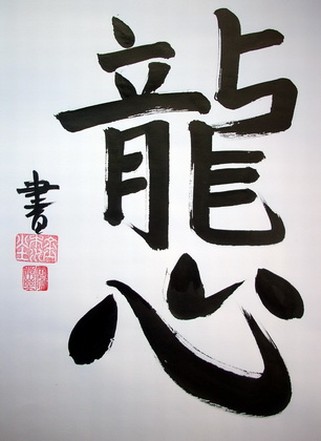 龍心
書